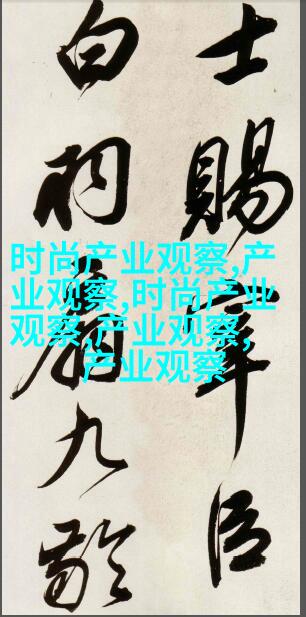 士賜宰臣
白羽扇九齡
时尚产业观察,产
业观察,时尚产业
观察,产业观察,
产业观察